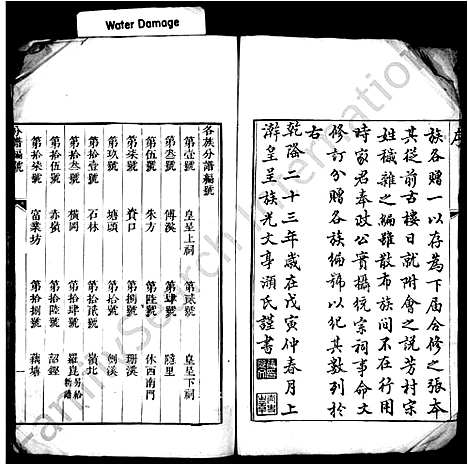 Water Damage
序
族各贈一以存為下屆會修之張本
其從前古樓日就附會之說芳村宗
姓穢雜之編雖散布族間不在行用
時家君奉政公實攝統宗祠事命文
修訂分贈各族編號以紀其數列於
右
乾隆二十三年歲在戊寅仲春月上
澣皇呈族光文亭顏氏謹書
各族分譜編號
第壹號 皇呈上祠 第貳號 皇呈下祠
第叁號 傅溪 第肆號 隱里
第伍號 朱方 第陸號 休西南門
第柒號 資口 第捌號 珊溪
第玖號 塘頭 第拾號 劍溪
第拾壹號 石林 第拾貳號 嶺北
第拾叁號 橫岡 第拾肆號 羅昆
第拾伍號 赤嶺 第拾陸號 韶鏗
第拾柒號 富業坊 第拾捌號 藕塘
分譜編號
FamilySearch International